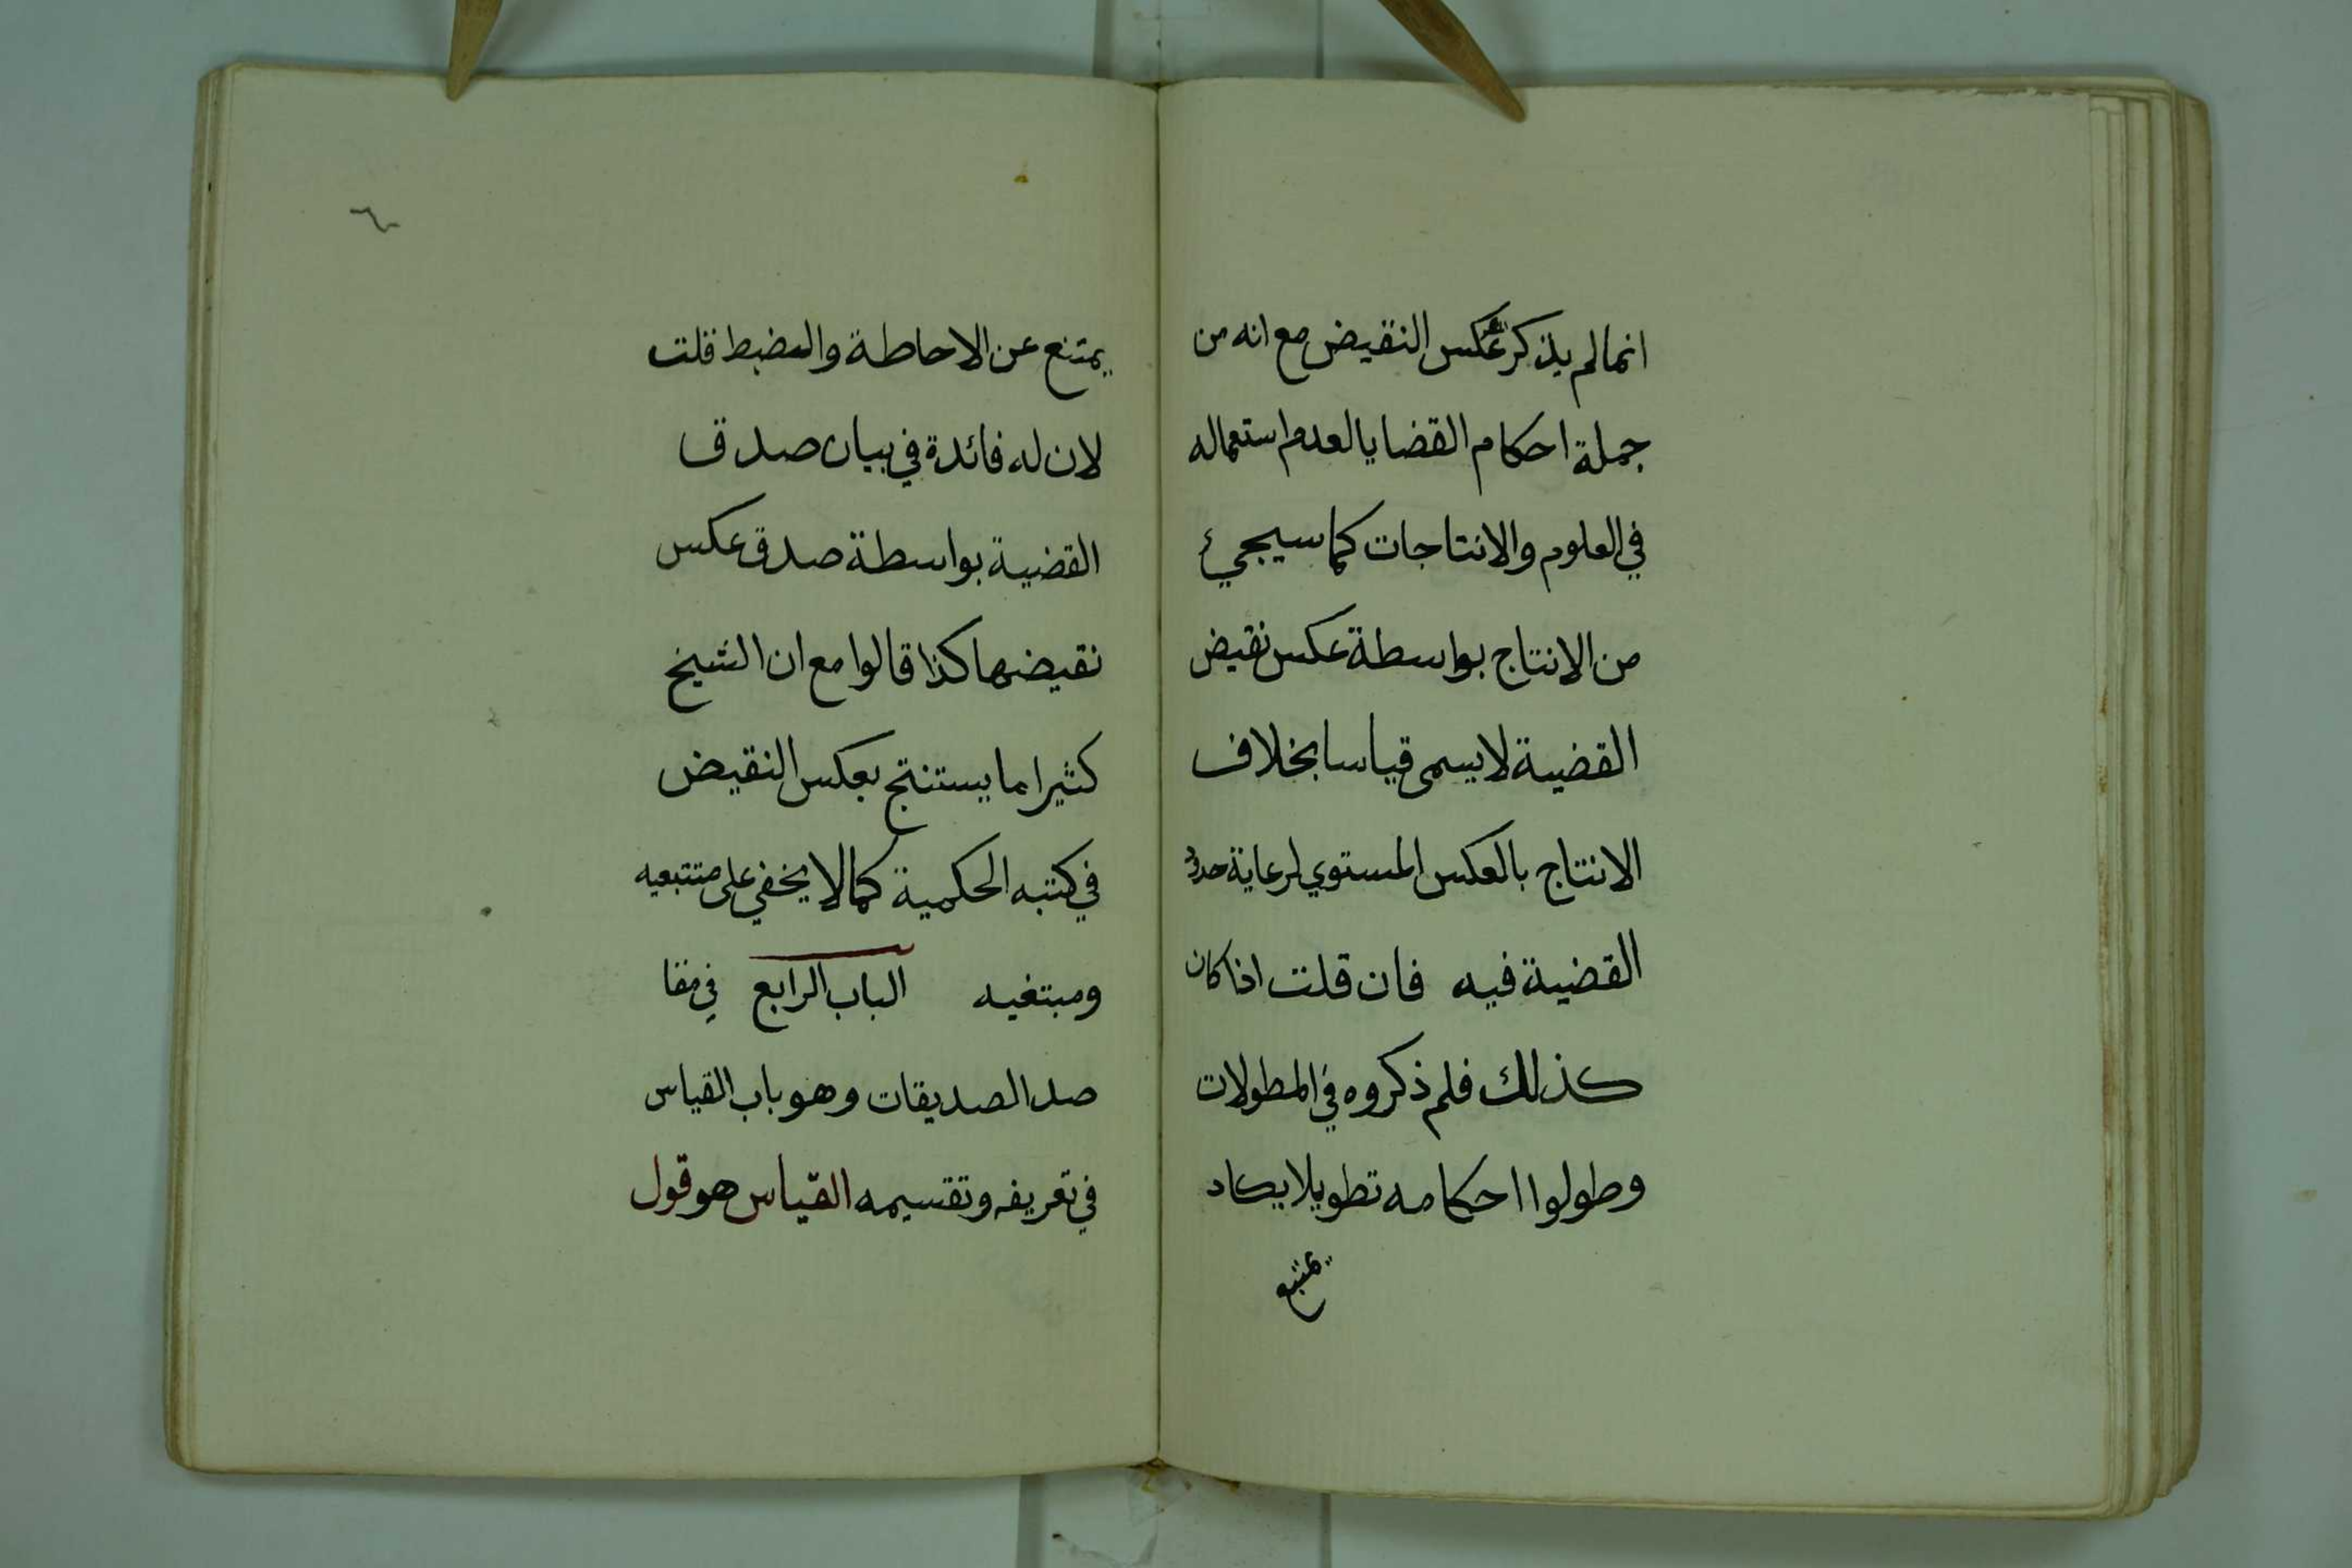 انما لم يذكر عكس النقيض مع انه من
جملة احكام القضايا لعدم استعماله
في العلوم والانتاجات كما سيجيئ
من الانتاج بواسطة عكس نقيض
القضية لا يسمى قياسا بخلاف
الانتاج بالعكس المستوي لرعاية حدود
القضية فيه فان قلت اذا كان
كذلك فلم ذكروه في المطولات
وطولوا احكامه تطويلا يكاد
يمتنع
يمتنع عن الاحاطة والضبط قلت
لان له فائدة في بيان صدق
القضية بواسطة صدق عكس
نقيضها كذا قالوا مع ان الشيخ
كثيرا ما يستنتج بعكس النقيض
في كتبه الحكمية كما لا يخفي على متتبعيه
ومبتغيه الباب الرابع في مقا
صد الصديقات وهو باب القياس
في تعريفه وتقسيمه القياس هو قول